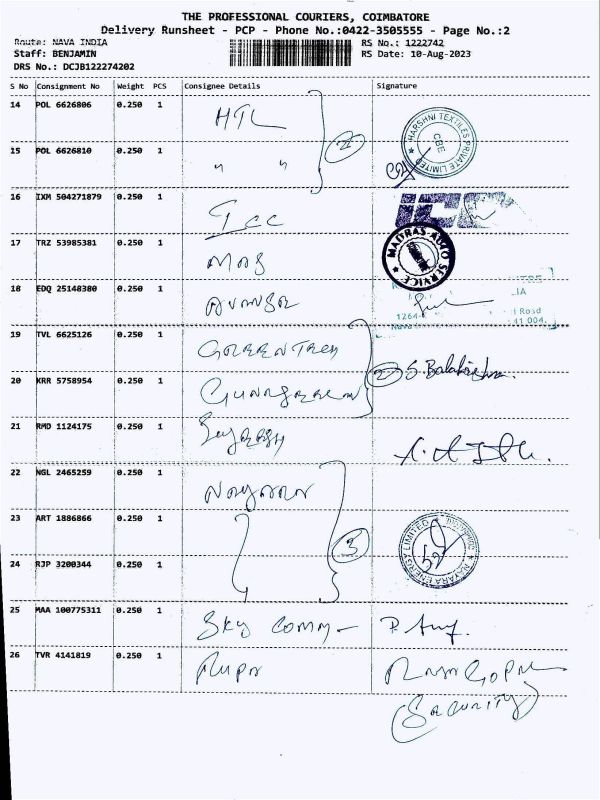 THE PROFESSIONAL COURIERS, COIMBATORE
Delivery Runsheet - PCP - Phone No.:0422-3505555 - Page No.:2
Route: NAVA INDIA RS No.: 1222742
Staff: BENJAMIN RS Date: 10-Aug-2023
DRS No.: DCJB122274202
S No Consignment No Weight PCS Consignee Details Signature
14 POL 6626806 0.250 1 HTL
HARSHNI TEXTILES PRIVATE LIMITED CBE
15 POL 6626810 0.250 1 " " 2
16 IXM 504271879 0.250 1 Icc
17 TRZ 53985381 0.250 1 MAS
MADRAS AUTO SERVICE
18 EDQ 25148380 0.250 1
1264
Road
41 004.
19 TVL 6625126 0.250 1 GREENTECH
20 KRR 5758954 0.250 1 2 S. Balakrishna.
21 RMD 1124175 0.250 1
22 NGL 2465259 0.250 1 NAYARA
23 ART 1886866 0.250 1 3
NAYARA ENERGY LIMITED
24 RJP 3200344 0.250 1
25 MAA 100775311 0.250 1 SKY COMM -
26 TVR 4141819 0.250 1 RUPA RAJAGOPAL
(SECURITY)